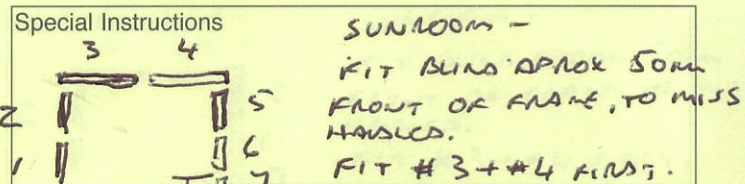 Special Instructions
SUNROOM -
3 4
FIT BLIND APROX 50mm
2 5
FRONT OF FRAME, TO MISS
HANDLES.
1 6
FIT #3 + #4 FIRST.
7